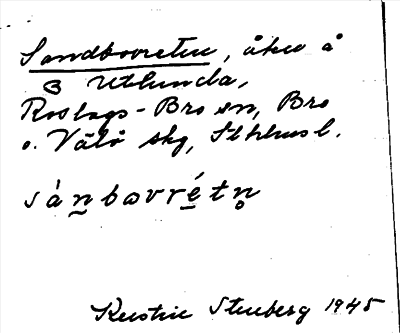 Sandbovreten, åker å
B Utlunda,
Roslags-Bro sn, Bro
o. Vätö skg, Sthlms l.
sánbovrétn̥
Kerstin Stenberg 1945